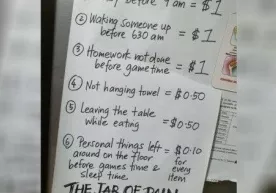 before 9 am = $1
② Waking someone up
before 630 am = $1
③ Homework not done
before game time = $1
④ Not hanging towel = $0.50
⑤ Leaving the table
while eating = $0.50
⑥ Personal things left = $0.10
around on the floor for
before games time & every
sleep time. item
THE JAR OF